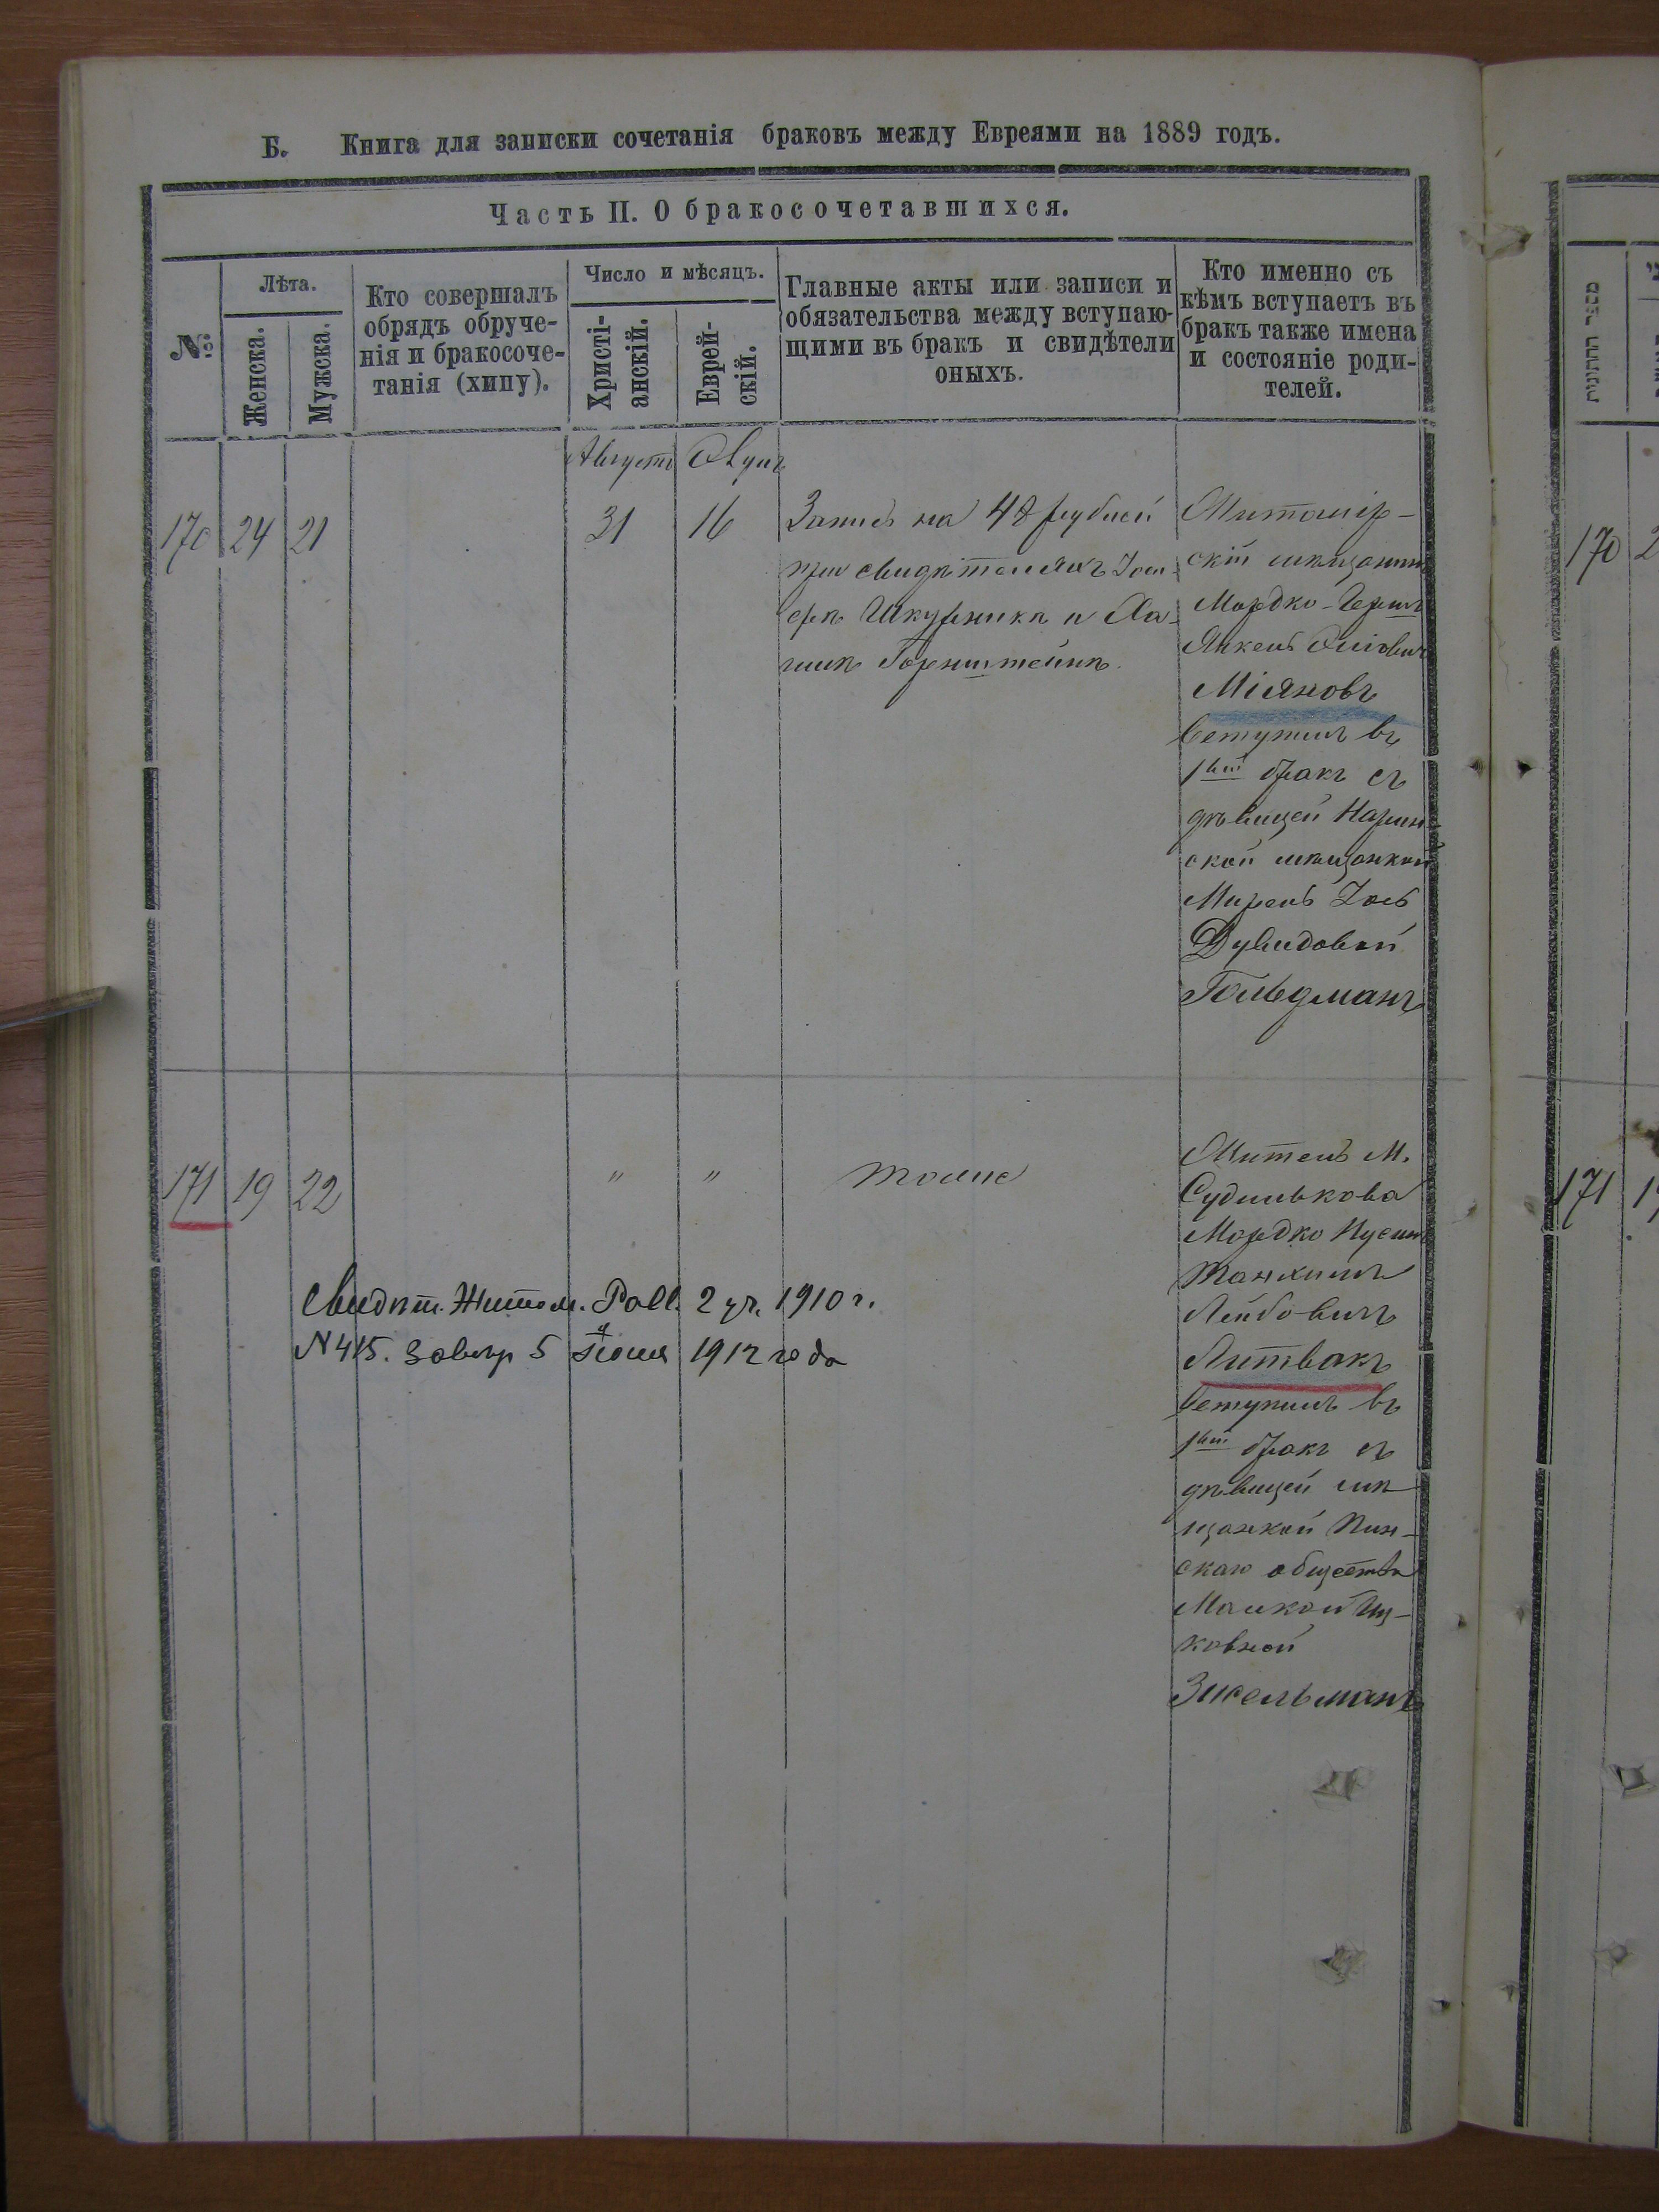 Б. Книга для записки сочетанія браковъ между Евреями на 1889 годъ.
Часть II. О бракосочетавшихся.
№
Лѣта.
Женска.
Мужска.
Кто совершалъ
обрядъ обруче-
нія и бракосоче-
танія (хипу).
Число и мѣсяцъ.
Христі-
анскій.
Еврей-
скій.
Главные акты или записи и
обязательства между вступаю-
щими въ бракъ и свидѣтели
оныхъ.
Кто именно съ
кѣмъ вступаетъ въ
бракъ также имена
и состояніе роди-
телей.
Августъ Элулъ
170 24 21 31 16
Запись на 48 рублей
при свидѣтеляхъ
Шкурника и Ха-
Горенштейнъ.
Житомір-
скій мѣщанинъ
Мордко-Герш
Янкель
Міляновъ
вступилъ въ
1ый бракъ съ
дѣвицей Нарин-
ской мѣщанкой
Мирель Іось
Дувидовой
Гольдманъ
171 19 22 " " тоже
Житель М.
Судилькова
Мордко Нусин
Танхимъ
Лейбовичъ
Литвакъ
вступилъ въ
1ый бракъ съ
дѣвицей мѣ-
щанкой Пин-
скаго общества
Малкой Иц-
ковной
Зисельманъ
Свидѣт. Житом. Равв. 2 уч. 1910 г.
N 415. Завѣр 5 Іюля 1912 года
מספר החתונות
170 2
171 1